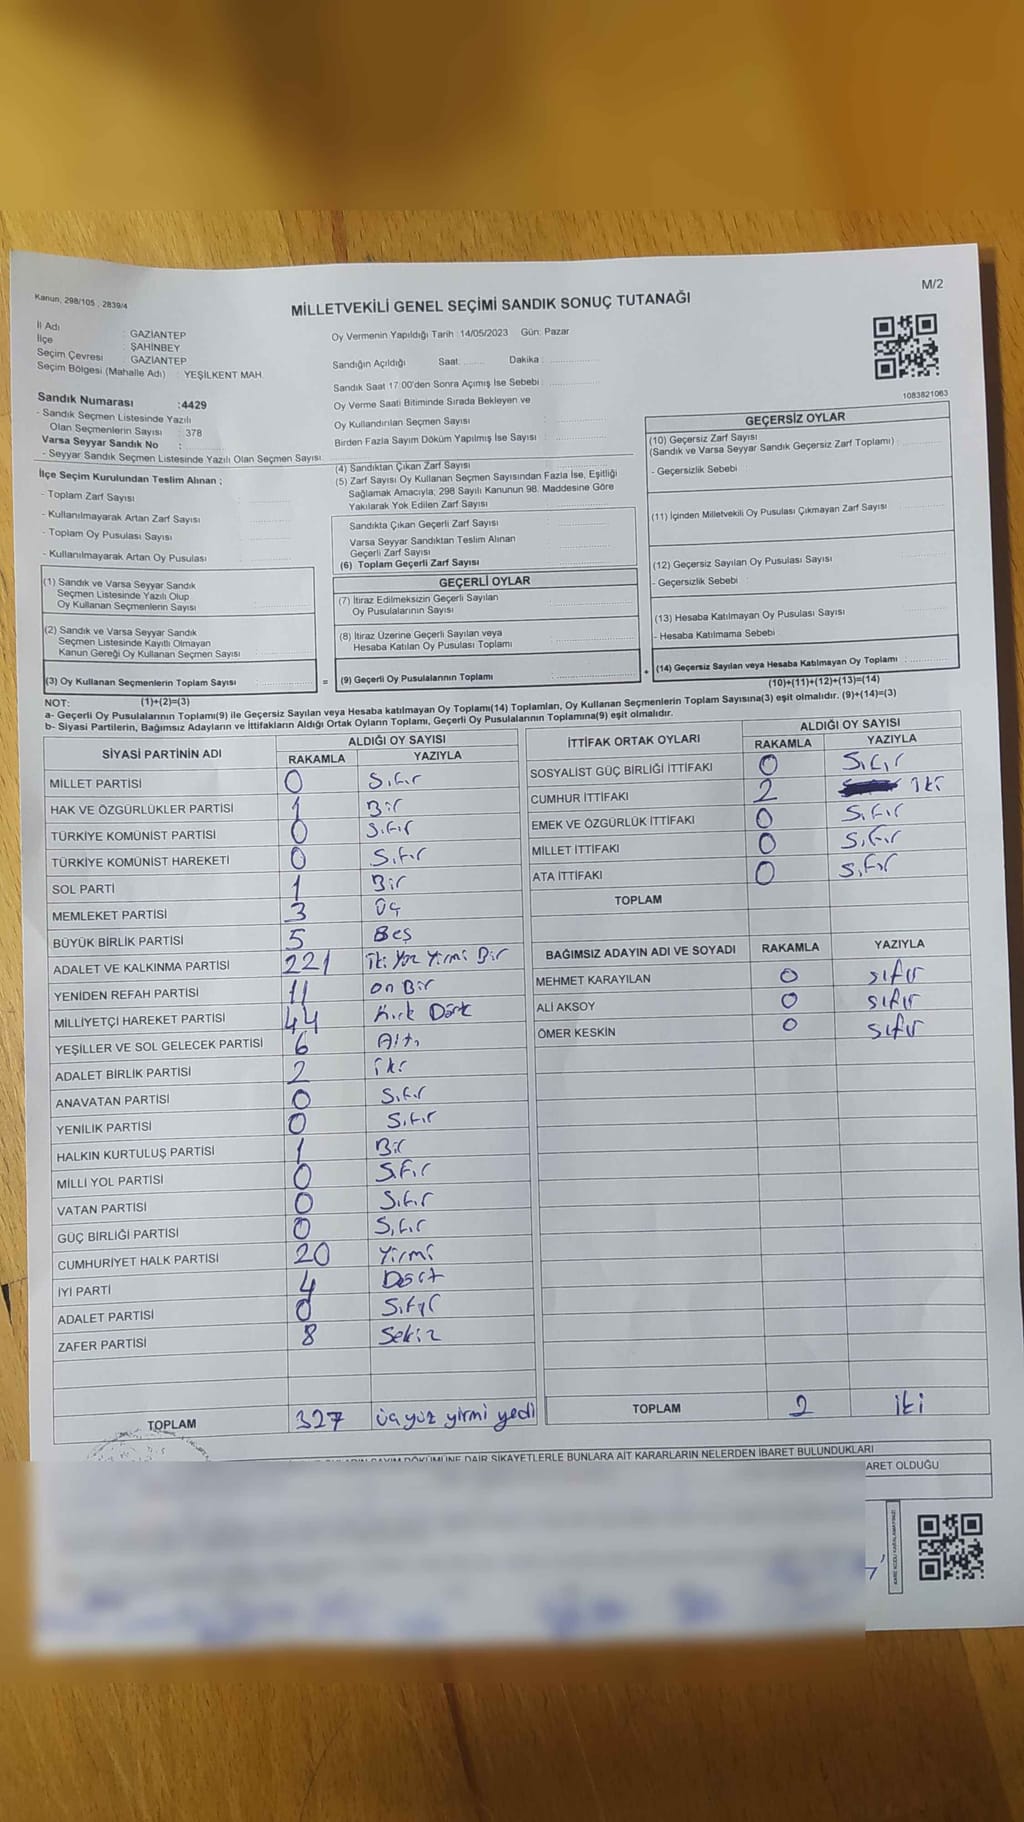 Kanun, 298/105 , 2839/4
MİLLETVEKİLİ GENEL SEÇİMİ SANDIK SONUÇ TUTANAĞI
M/2
İl Adı : GAZİANTEP
İlçe : ŞAHİNBEY
Seçim Çevresi : GAZİANTEP
Seçim Bölgesi (Mahalle Adı) : YEŞİLKENT MAH.
Sandık Numarası :4429
- Sandık Seçmen Listesinde Yazılı
Olan Seçmenlerin Sayısı : 378
Varsa Seyyar Sandık No :
- Seyyar Sandık Seçmen Listesinde Yazılı Olan Seçmen Sayısı:
Oy Vermenin Yapıldığı Tarih :14/05/2023 Gün: Pazar
Sandığın Açıldığı Saat: Dakika :
Sandık Saat 17:00'den Sonra Açımış İse Sebebi :
Oy Verme Saati Bitiminde Sırada Bekleyen ve
Oy Kullandırılan Seçmen Sayısı :
Birden Fazla Sayım Döküm Yapılmış İse Sayısı :
1083821063
İlçe Seçim Kurulundan Teslim Alınan ;
- Toplam Zarf Sayısı
- Kullanılmayarak Artan Zarf Sayısı
- Toplam Oy Pusulası Sayısı
- Kullanılmayarak Artan Oy Pusulası
(1) Sandık ve Varsa Seyyar Sandık
Seçmen Listesinde Yazılı Olup
Oy Kullanan Seçmenlerin Sayısı
(2) Sandık ve Varsa Seyyar Sandık
Seçmen Listesinde Kayıtlı Olmayan
Kanun Gereği Oy Kullanan Seçmen Sayısı
(3) Oy Kullanan Seçmenlerin Toplam Sayısı
(4) Sandıktan Çıkan Zarf Sayısı
(5) Zarf Sayısı Oy Kullanan Seçmen Sayısından Fazla İse, Eşitliği
Sağlamak Amacıyla; 298 Sayılı Kanunun 98. Maddesine Göre
Yakılarak Yok Edilen Zarf Sayısı
Sandıkta Çıkan Geçerli Zarf Sayısı
Varsa Seyyar Sandıktan Teslim Alınan
Geçerli Zarf Sayısı
(6) Toplam Geçerli Zarf Sayısı
GEÇERLİ OYLAR
(7) İtiraz Edilmeksizin Geçerli Sayılan
Oy Pusulalarının Sayısı
(8) İtiraz Üzerine Geçerli Sayılan veya
Hesaba Katılan Oy Pusulası Toplamı
= (9) Geçerli Oy Pusulalarının Toplamı
GEÇERSİZ OYLAR
(10) Geçersiz Zarf Sayısı
(Sandık ve Varsa Seyyar Sandık Geçersiz Zarf Toplamı) :
- Geçersizlik Sebebi :
(11) İçinden Milletvekili Oy Pusulası Çıkmayan Zarf Sayısı :
(12) Geçersiz Sayılan Oy Pusulası Sayısı
- Geçersizlik Sebebi :
(13) Hesaba Katılmayan Oy Pusulası Sayısı
- Hesaba Katılmama Sebebi :
+ (14) Geçersiz Sayılan veya Hesaba Katılmayan Oy Toplamı :
NOT: (1)+(2)=(3) (10)+(11)+(12)+(13)=(14)
a- Geçerli Oy Pusulalarının Toplamı(9) ile Geçersiz Sayılan veya Hesaba katılmayan Oy Toplamı(14) Toplamları, Oy Kullanan Seçmenlerin Toplam Sayısına(3) eşit olmalıdır. (9)+(14)=(3)
b- Siyasi Partilerin, Bağımsız Adayların ve İttifakların Aldığı Ortak Oyların Toplamı, Geçerli Oy Pusulalarının Toplamına(9) eşit olmalıdır.
SİYASİ PARTİNİN ADI ALDIĞI OY SAYISI
RAKAMLA YAZIYLA
MİLLET PARTİSİ 0 Sıfır
HAK VE ÖZGÜRLÜKLER PARTİSİ 1 Bir
TÜRKİYE KOMÜNİST PARTİSİ 0 Sıfır
TÜRKİYE KOMÜNİST HAREKETİ 0 Sıfır
SOL PARTİ 1 Bir
MEMLEKET PARTİSİ 3 Üç
BÜYÜK BİRLİK PARTİSİ 5 Beş
ADALET VE KALKINMA PARTİSİ 221 İki Yüz Yirmi Bir
YENİDEN REFAH PARTİSİ 11 On Bir
MİLLİYETÇİ HAREKET PARTİSİ 44 Kırk Dört
YEŞİLLER VE SOL GELECEK PARTİSİ 6 Altı
ADALET BİRLİK PARTİSİ 2 İki
ANAVATAN PARTİSİ 0 Sıfır
YENİLİK PARTİSİ 0 Sıfır
HALKIN KURTULUŞ PARTİSİ 1 Bir
MİLLİ YOL PARTİSİ 0 Sıfır
VATAN PARTİSİ 0 Sıfır
GÜÇ BİRLİĞİ PARTİSİ 0 Sıfır
CUMHURİYET HALK PARTİSİ 20 Yirmi
İYİ PARTİ 4 Dört
ADALET PARTİSİ 0 Sıfır
ZAFER PARTİSİ 8 Sekiz
TOPLAM 327 üçyüz yirmi yedi
İTTİFAK ORTAK OYLARI ALDIĞI OY SAYISI
RAKAMLA YAZIYLA
SOSYALİST GÜÇ BİRLİĞİ İTTİFAKI 0 Sıfır
CUMHUR İTTİFAKI 2 iki
EMEK VE ÖZGÜRLÜK İTTİFAKI 0 Sıfır
MİLLET İTTİFAKI 0 Sıfır
ATA İTTİFAKI 0 Sıfır
TOPLAM
BAĞIMSIZ ADAYIN ADI VE SOYADI RAKAMLA YAZIYLA
MEHMET KARAYILAN 0 sıfır
ALİ AKSOY 0 sıfır
ÖMER KESKİN 0 sıfır
TOPLAM 2 iki
DÖKÜMÜNE DAİR ŞİKAYETLERLE BUNLARA AİT KARARLARIN NELERDEN İBARET BULUNDUKLARI
ARET OLDUĞU